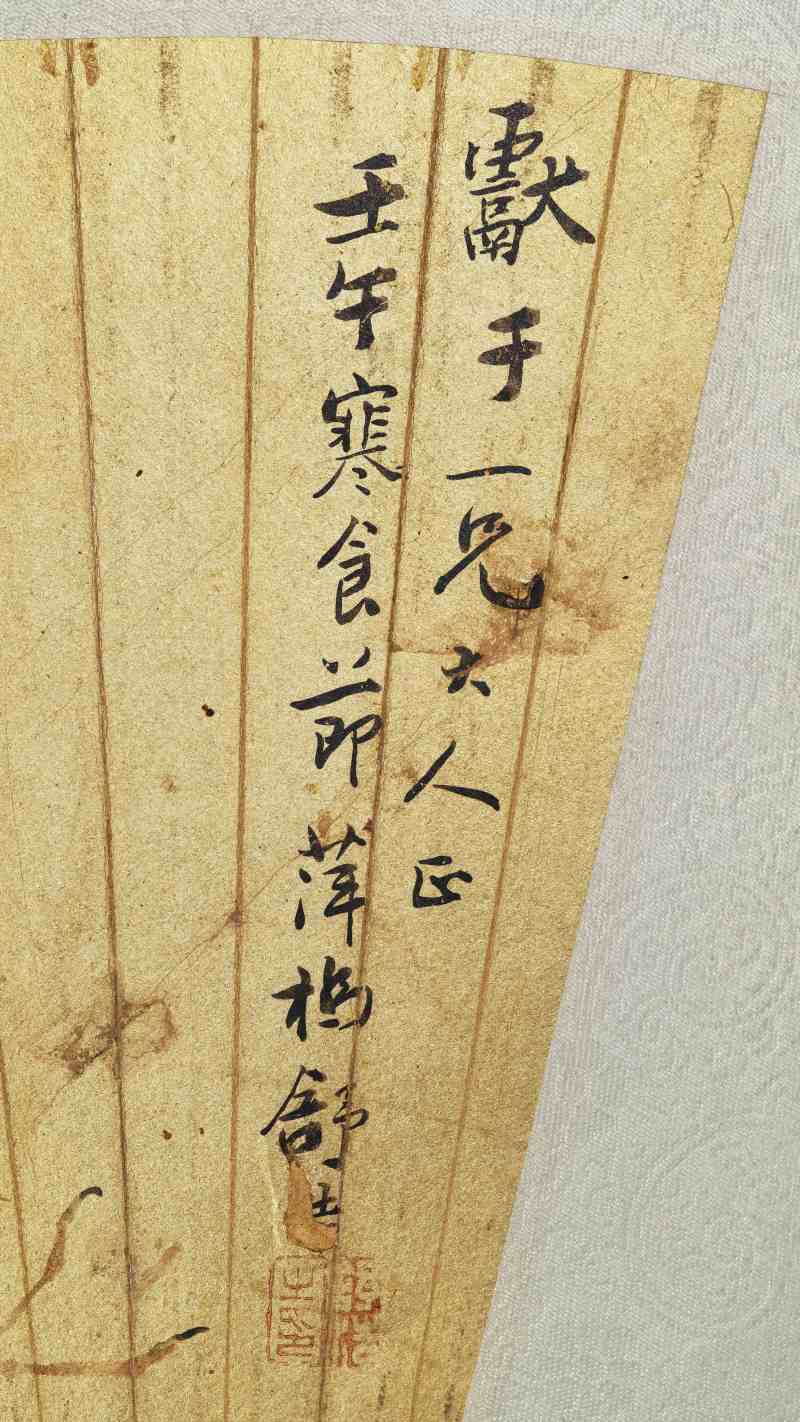 獻于一兄大人正
壬午寒食節萍橋舒